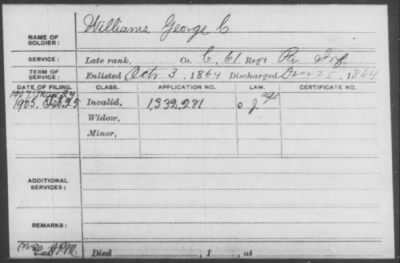 NAME OF SOLDIER: Williams George C
SERVICE: Late rank, Co. C, 61 Reg't Pa Inf.
TERM OF SERVICE: Enlisted Oct 3, 1864 Discharged 25, 1864
DATE OF FILING. CLASS. APPLICATION NO. LAW. CERTIFICATE NO.
1907
1905. Feb 25 Invalid, 1,332,281
Widow,
Minor,
ADDITIONAL SERVICES:
REMARKS:
Died , 1 , at